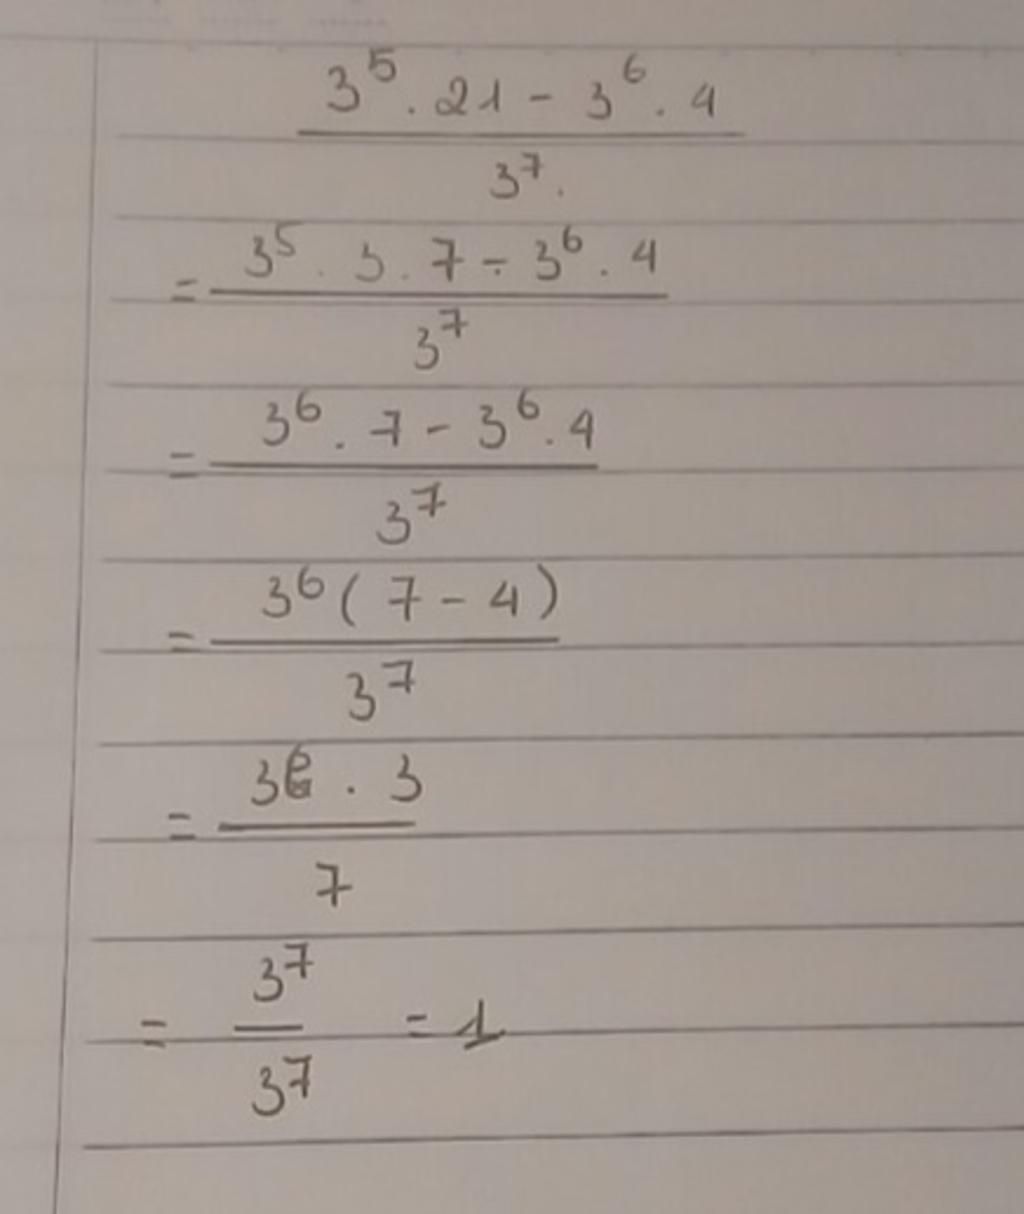 3⁵ . 21 - 3⁶ . 4
3⁷ .
= 3⁵ . 3 . 7 - 3⁶ . 4
3⁷
= 3⁶ . 7 - 3⁶ . 4
3⁷
= 3⁶ ( 7 - 4 )
3⁷
= 3⁶ . 3
7
= 3⁷ = 1
3⁷